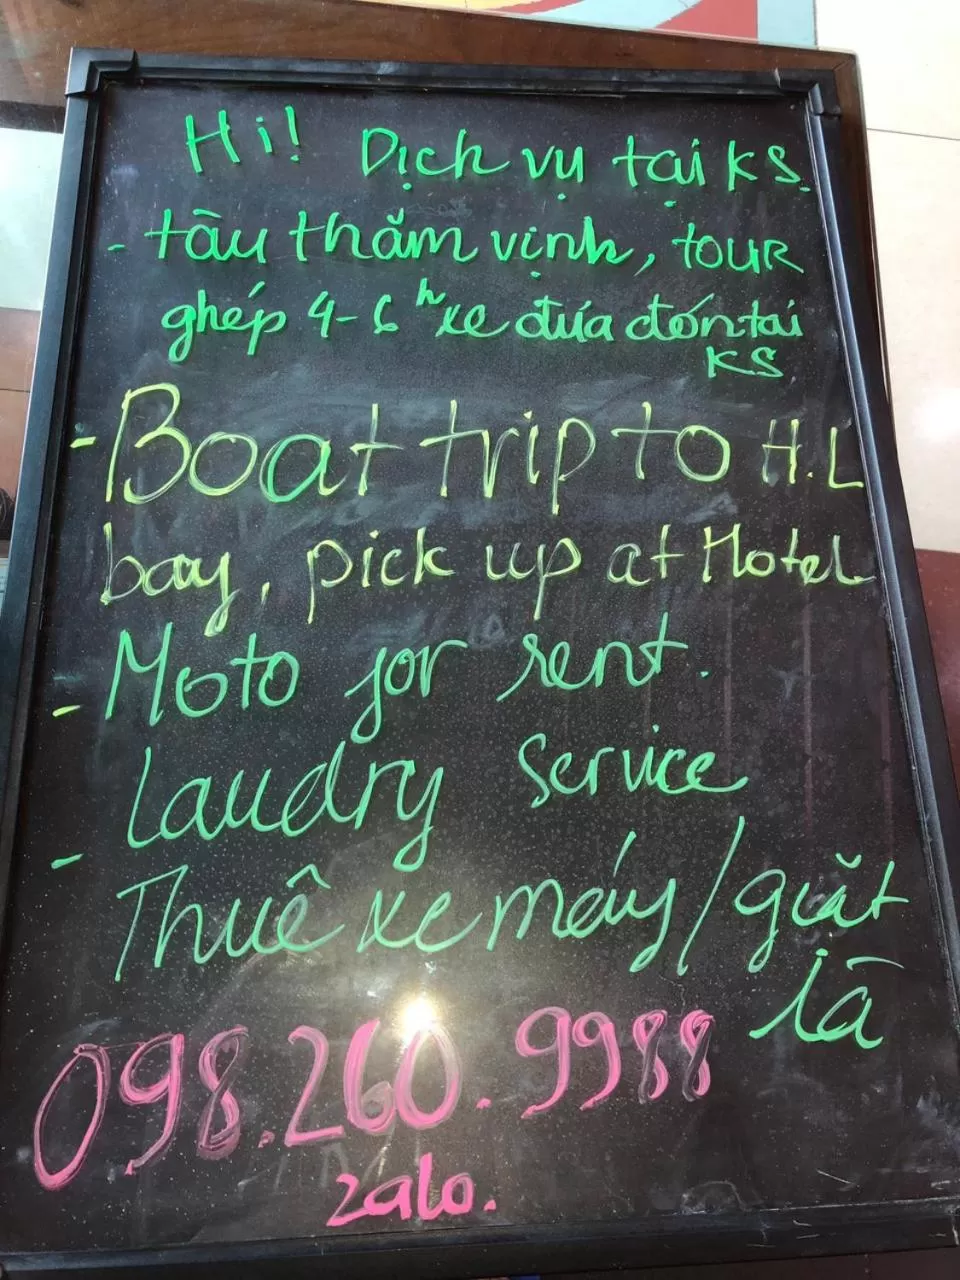 Hi! Dịch vụ tại KS.
- tàu thăm vịnh, TOUR
ghép 4-6h xe đưa đón tại
KS
- Boat trip to H.L
bay, pick up at Hotel
- Moto for rent.
Laudry service
- Thuê xe máy/giặt
là
098.260.9988
zalo.